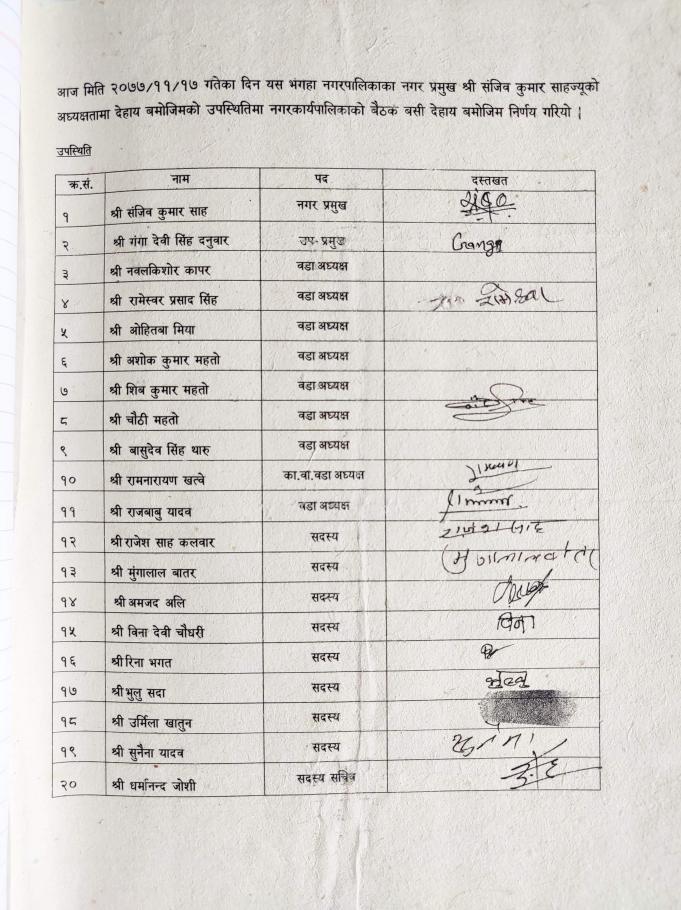 आज मिति २०७७/११/१७ गतेका दिन यस भंगहा नगरपालिकाका नगर प्रमुख श्री संजिव कुमार साहज्यूको
अध्यक्षतामा देहाय बमोजिमको उपस्थितिमा नगरकार्यपालिकाको बैठक बसी देहाय बमोजिम निर्णय गरियो |
उपस्थिति
क्र.सं. नाम पद दस्तखत
१ श्री संजिव कुमार साह नगर प्रमुख
२ श्री गंगा देवी सिंह दनुवार उप- प्रमुख Ganga
३ श्री नवलकिशोर कापर वडा अध्यक्ष
४ श्री रामेस्वर प्रसाद सिंह वडा अध्यक्ष
५ श्री ओहितबा मिया वडा अध्यक्ष
६ श्री अशोक कुमार महतो वडा अध्यक्ष
७ श्री शिब कुमार महतो वडा अध्यक्ष
८ श्री चौठी महतो वडा अध्यक्ष
९ श्री बासुदेव सिंह थारु वडा अध्यक्ष
१० श्री रामनारायण खत्वे का.वा.वडा अध्यक्ष
११ श्री राजबाबु यादव वडा अध्यक्ष
१२ श्री राजेश साह कलवार सदस्य
१३ श्री मुंगालाल बातर सदस्य
१४ श्री अमजद अलि सदस्य
१५ श्री विना देवी चौधरी सदस्य विना
१६ श्री रिना भगत सदस्य
१७ श्री भुलु सदा सदस्य
१८ श्री उर्मिला खातुन सदस्य
१९ श्री सुनैना यादव सदस्य
२० श्री धर्मानन्द जोशी सदस्य सचिव